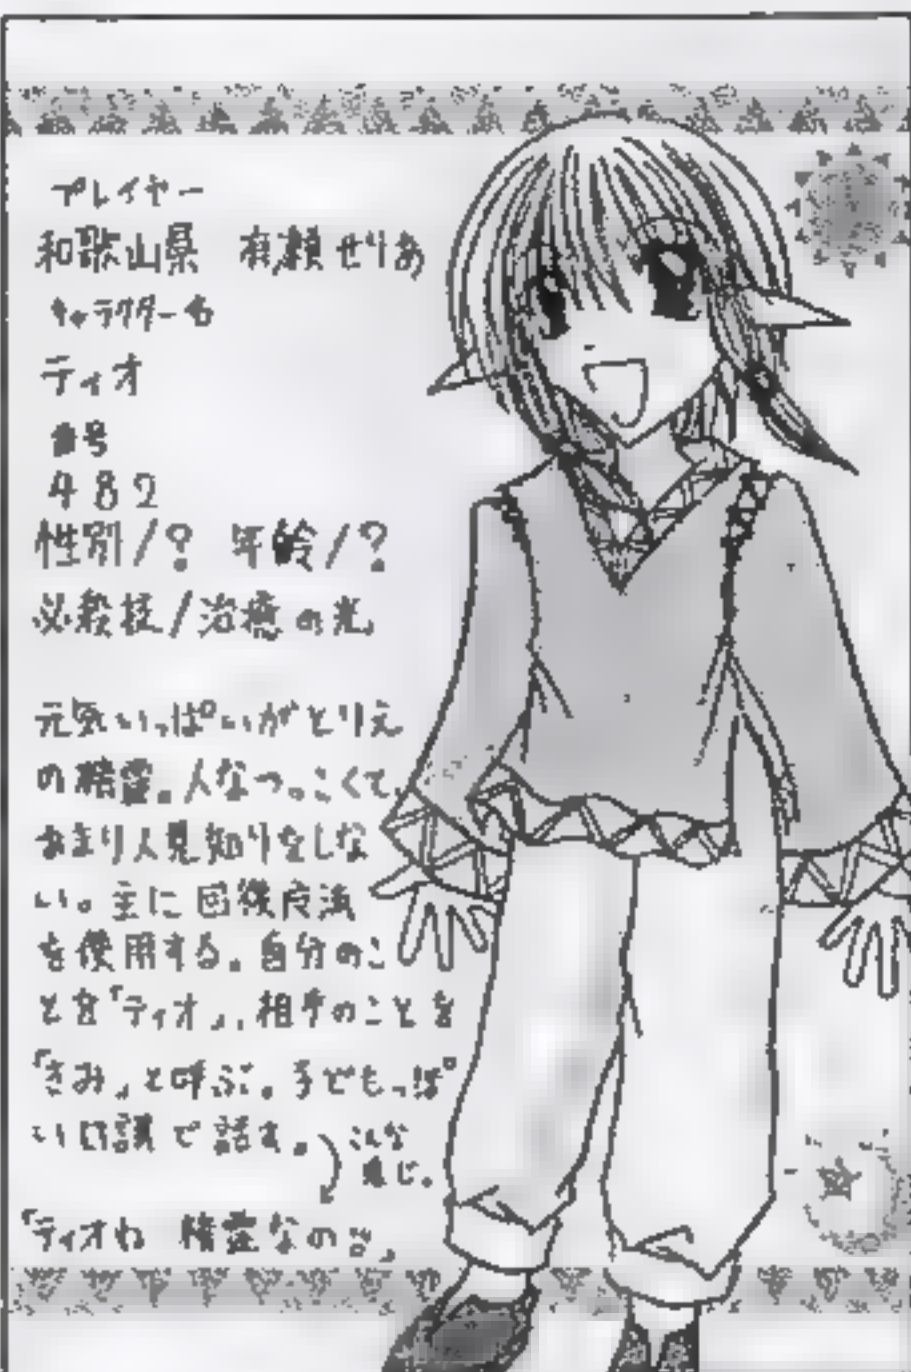 プレイヤー
和歌山県 有瀬せりあ
キャラクター名
ティオ
番号
482
性別/? 年齢/?
必殺技/治癒の光
元気いっぱいがとりえ
の精霊。人なつっこくて、
あまり人見知りをしな
い。主に回復
を使用する。自分のこ
とを「ティオ」、相手のことを
「きみ」と呼ぶ。子どもっぽ
い口調で話す。こんな
感じ。
「ティオね 精霊なの